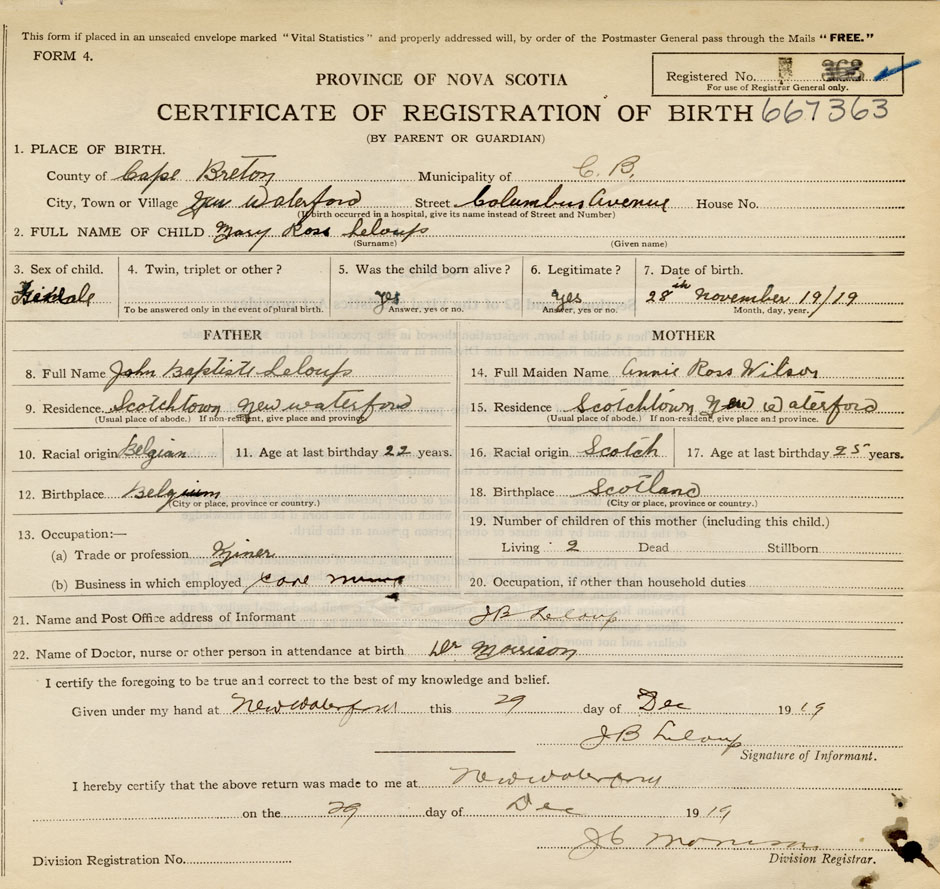 This form if placed in an unsealed envelope marked "Vital Statistics" and properly addressed will, by order of the Postmaster General pass through the Mails "FREE."
FORM 4.
Registered No. 363
For use of Registrar General only.
PROVINCE OF NOVA SCOTIA
CERTIFICATE OF REGISTRATION OF BIRTH 667363
(BY PARENT OR GUARDIAN)
1. PLACE OF BIRTH.
County of Cape Breton Municipality of C. B.
City, Town or Village New Waterford Street Columbus Avenue House No.
(If birth occurred in a hospital, give its name instead of Street and Number)
2. FULL NAME OF CHILD Mary Ross Leloup
(Surname) (Given name)
3. Sex of child. 4. Twin, triplet or other? 5. Was the child born alive? 6. Legitimate? 7. Date of birth.
Female yes yes 28th November 19/19
To be answered only in the event of plural birth. Answer, yes or no. Answer, yes or no. Month, day, year.
FATHER MOTHER
8. Full Name John Baptiste Leloup 14. Full Maiden Name Annie Ross Wilson
9. Residence Scotchtown New waterford 15. Residence Scotchtown New Waterford
(Usual place of abode.) If non-resident, give place and province. (Usual place of abode.) If non-resident, give place and province.
10. Racial origin Belgian 11. Age at last birthday 22 years. 16. Racial origin Scotch 17. Age at last birthday 25 years.
12. Birthplace Belgium 18. Birthplace Scotland
(City or place, province or country.) (City or place, province or country.)
13. Occupation:— 19. Number of children of this mother (including this child.)
(a) Trade or profession Miner Living 2 Dead Stillborn
(b) Business in which employed 20. Occupation, if other than household duties
21. Name and Post Office address of Informant JB Leloup
22. Name of Doctor, nurse or other person in attendance at birth Dr Morrison
I certify the foregoing to be true and correct to the best of my knowledge and belief.
Given under my hand at New Waterford this 29 day of Dec 1919
JB Leloup
Signature of Informant.
I hereby certify that the above return was made to me at New Waterford
on the 29 day of Dec 1919
Morrison
Division Registration No. Division Registrar.